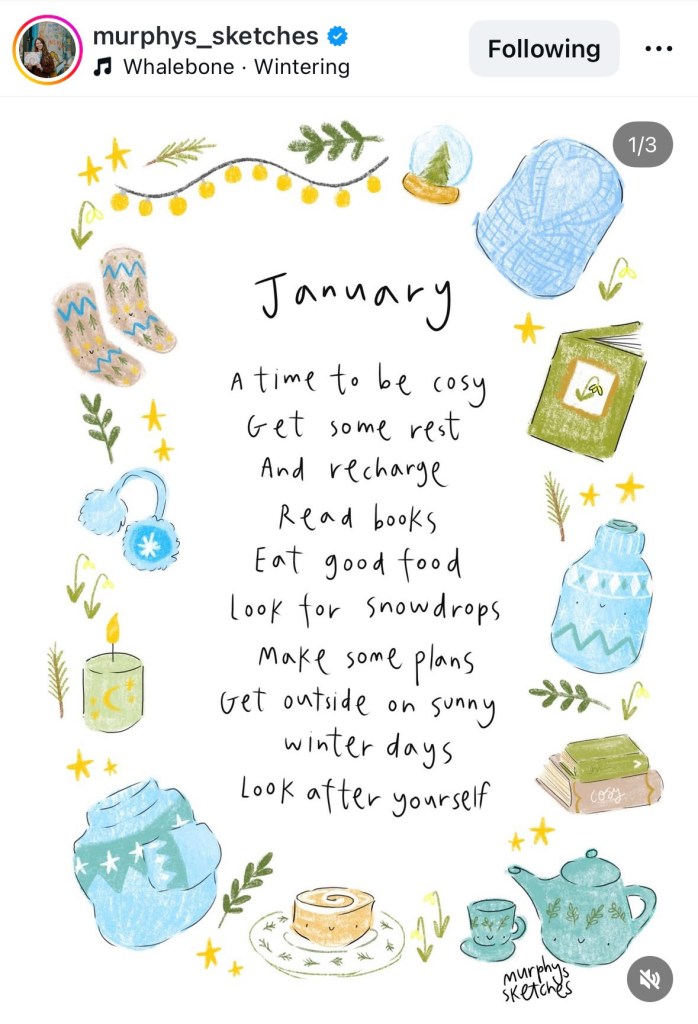 murphys_sketches
Whalebone · Wintering
Following
1/3
January
A time to be cosy
Get some rest
And recharge
Read books
Eat good food
Look for snowdrops
Make some plans
Get outside on sunny
winter days
Look after yourself
cosy
murphys
sketches